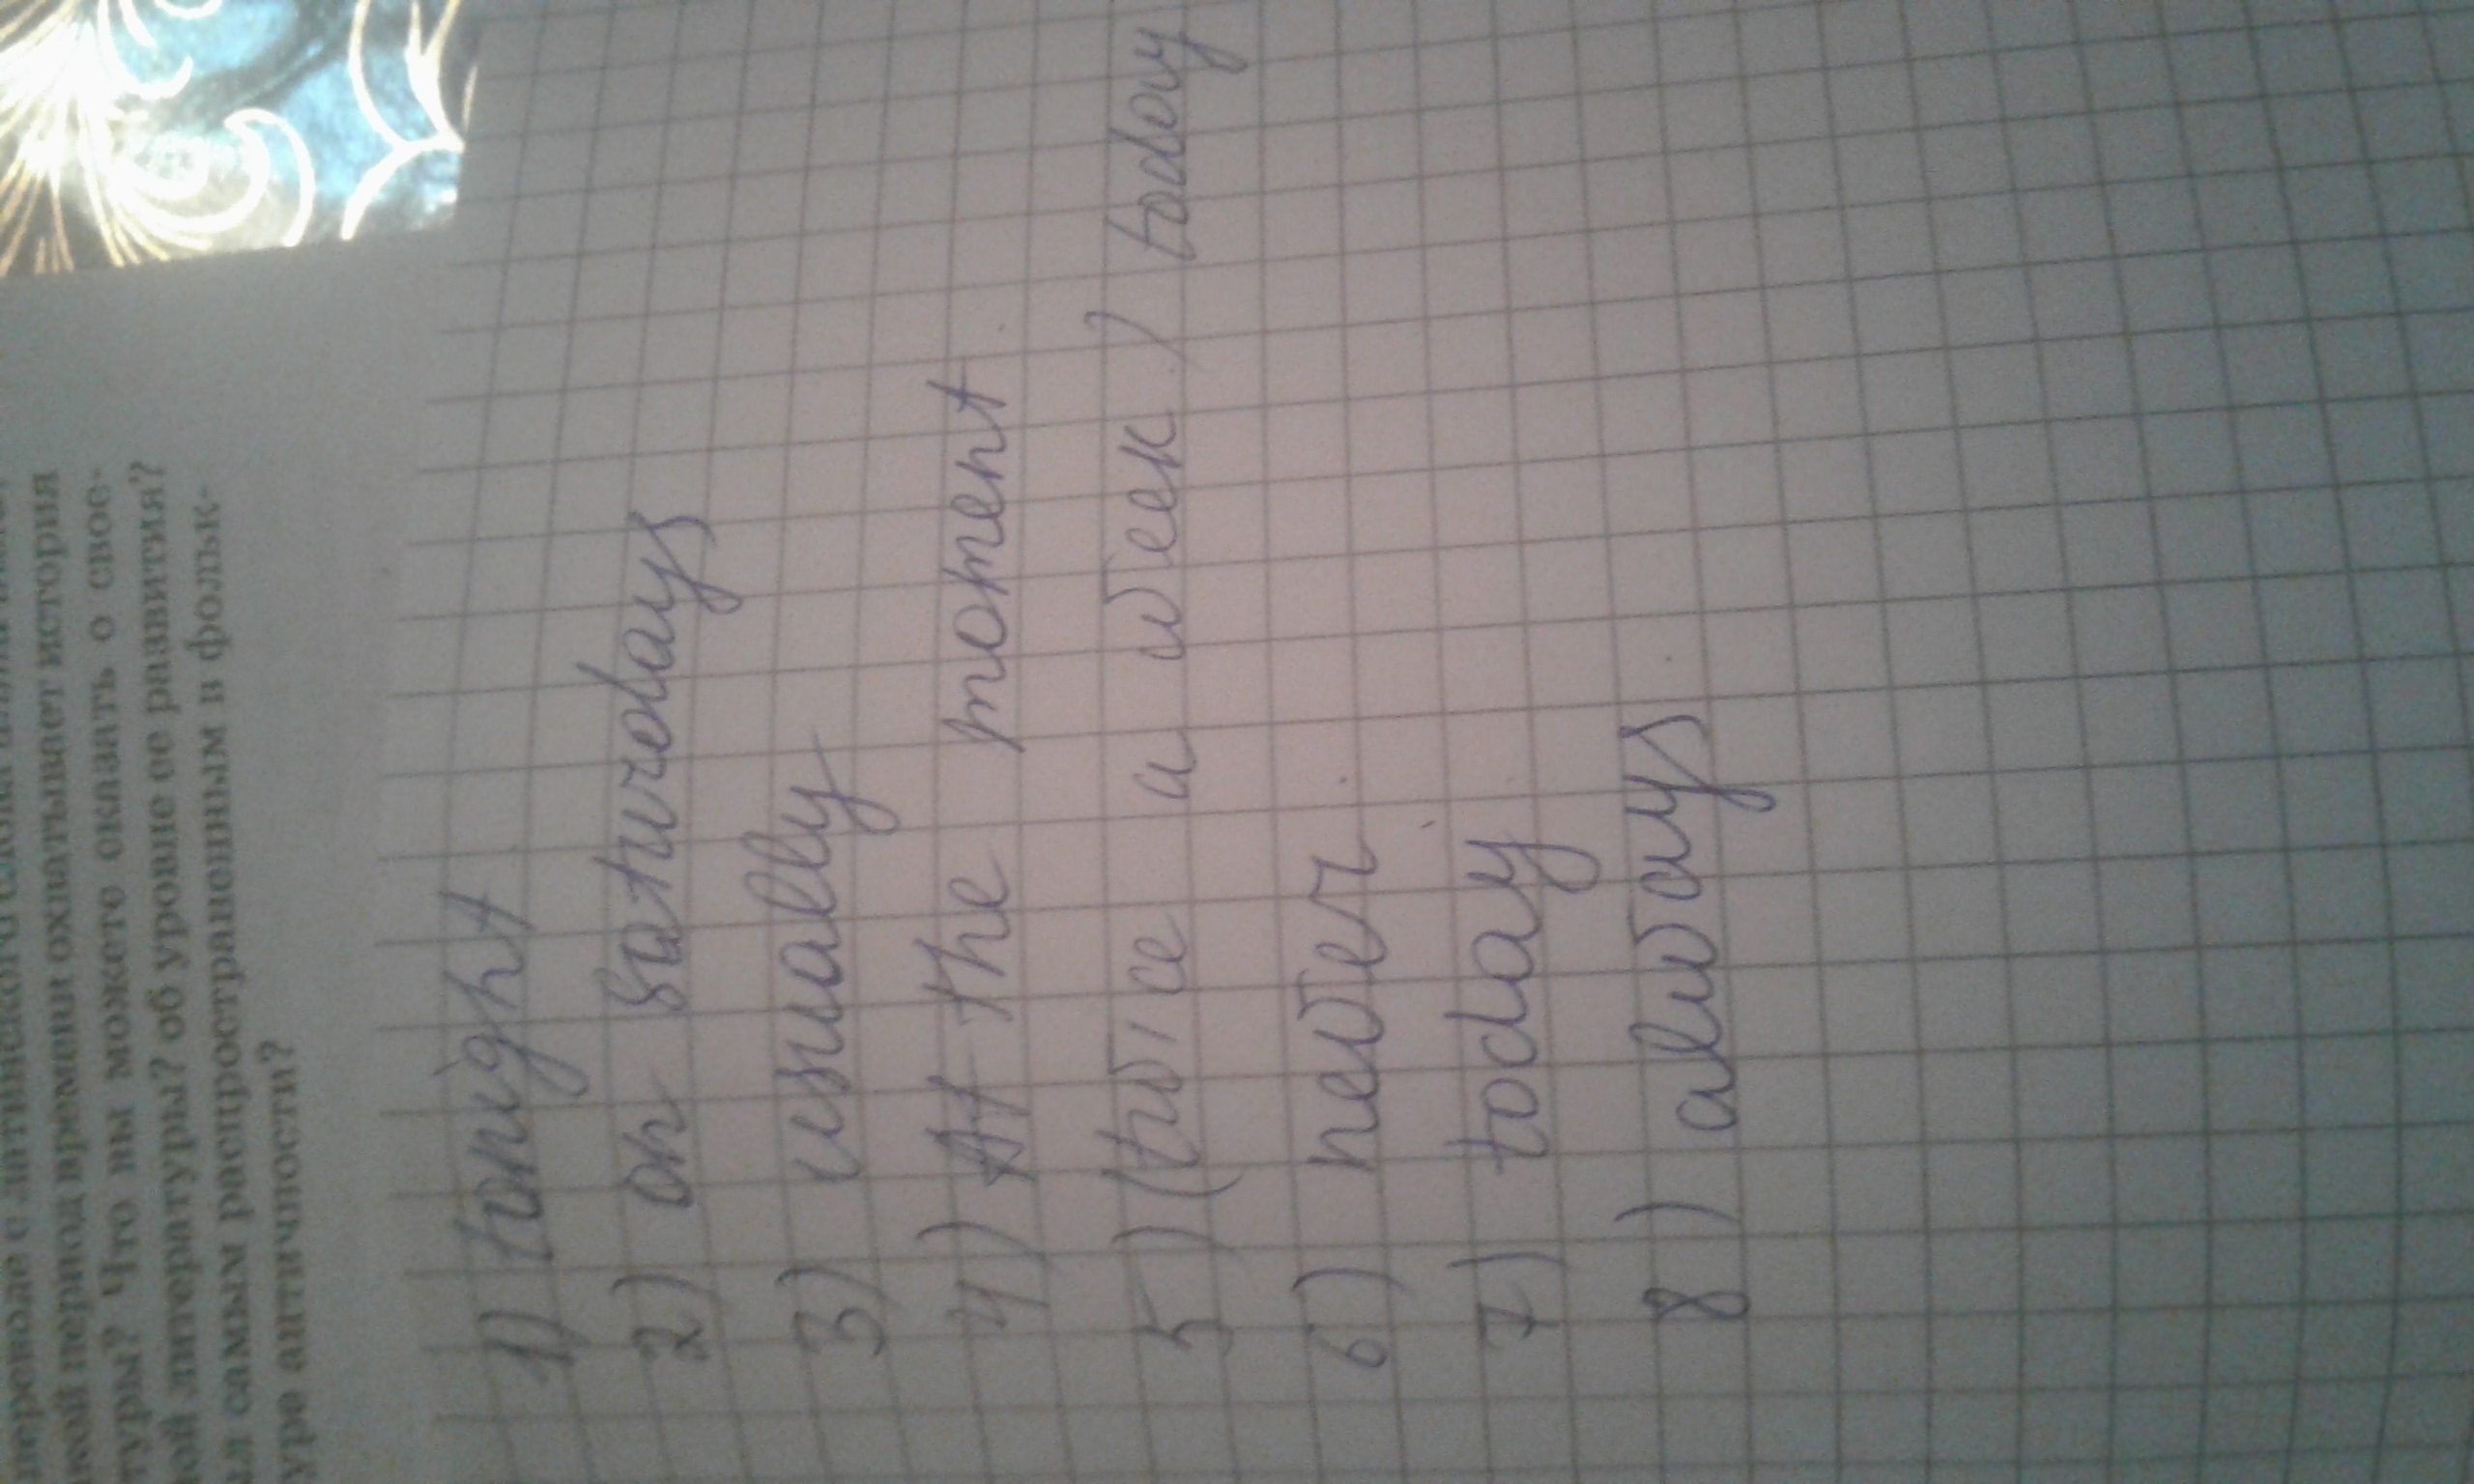 переводе с латинского
кой период времени охватывает история
туры? Что вы можете сказать о свое-
ой литературы? об уровне ее развития?
ял самым распространенным в фольк-
уре античности?
1) tonight
2) on Saturdays
3) usually
4) At the moment
5) (twice a week) today
6) never
7) today
8) always